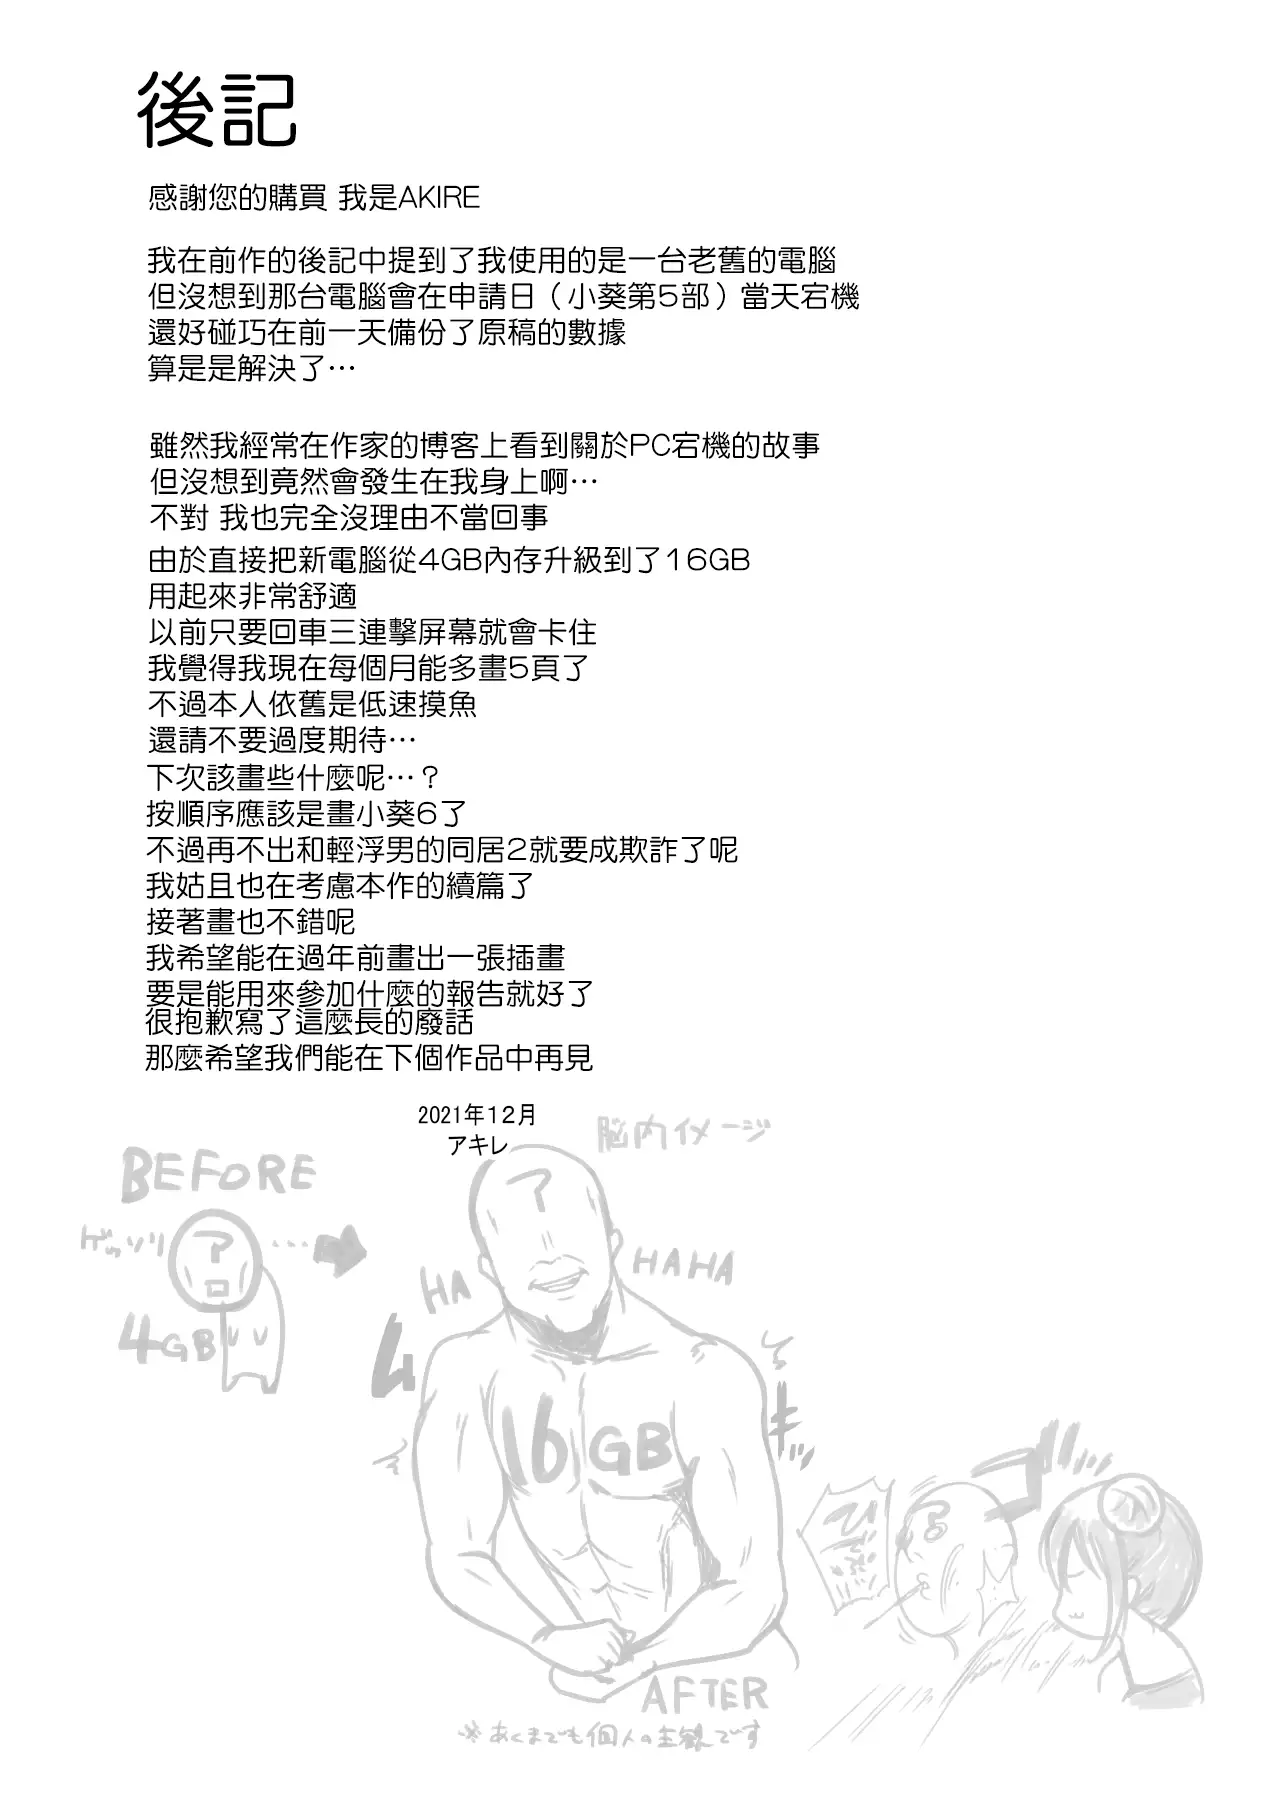 後記
感謝您的購買 我是AKIRE
我在前作的後記中提到了我使用的是一台老舊的電腦
但沒想到那台電腦會在申請日（小葵第5部）當天宕機
還好碰巧在前一天備份了原稿的數據
算是是解決了…
雖然我經常在作家的博客上看到關於PC宕機的故事
但沒想到竟然會發生在我身上啊…
不對 我也完全沒理由不當回事
由於直接把新電腦從4GB內存升級到了16GB
用起來非常舒適
以前只要回車三連擊屏幕就會卡住
我覺得我現在每個月能多畫5頁了
不過本人依舊是低速摸魚
還請不要過度期待…
下次該畫些什麼呢…？
按順序應該是畫小葵6了
不過再不出和輕浮男的同居2就要成欺詐了呢
我姑且也在考慮本作的續篇了
接著畫也不錯呢
我希望能在過年前畫出一張插畫
要是能用來參加什麼的報告就好了
很抱歉寫了這麼長的廢話
那麼希望我們能在下個作品中再見
2021年12月
アキレ
脳内イメージ
BEFORE
ゲッソリ
ア
…
4GB
ア
HA
HAHA
ムキッ
16GB
AFTER
※あくまでも個人の主観です
ゴ